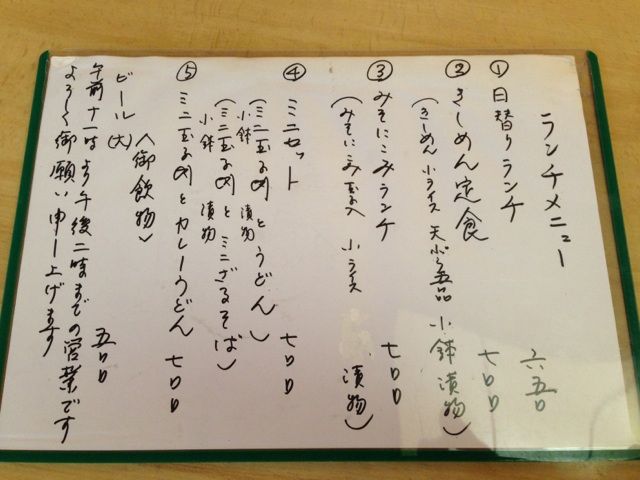 ランチメニュー
① 日替りランチ 六五〇
② きしめん定食 七〇〇
(きしめん 小ライス 天ぷら五品 小鉢 漬物)
③ みそにこみランチ 七〇〇
(みそにこみ玉入 小ライス 漬物)
④ ミニセット 七〇〇
(ミニ玉子丼とうどん)
小鉢 漬物
(ミニ玉子丼とミニざるそば)
小鉢 漬物
⑤ ミニ玉子丼とカレーうどん 七〇〇
〈御飲物〉
ビール (大) 五〇〇
午前十一時より午後二時までの営業です
よろしく御願い申し上げます